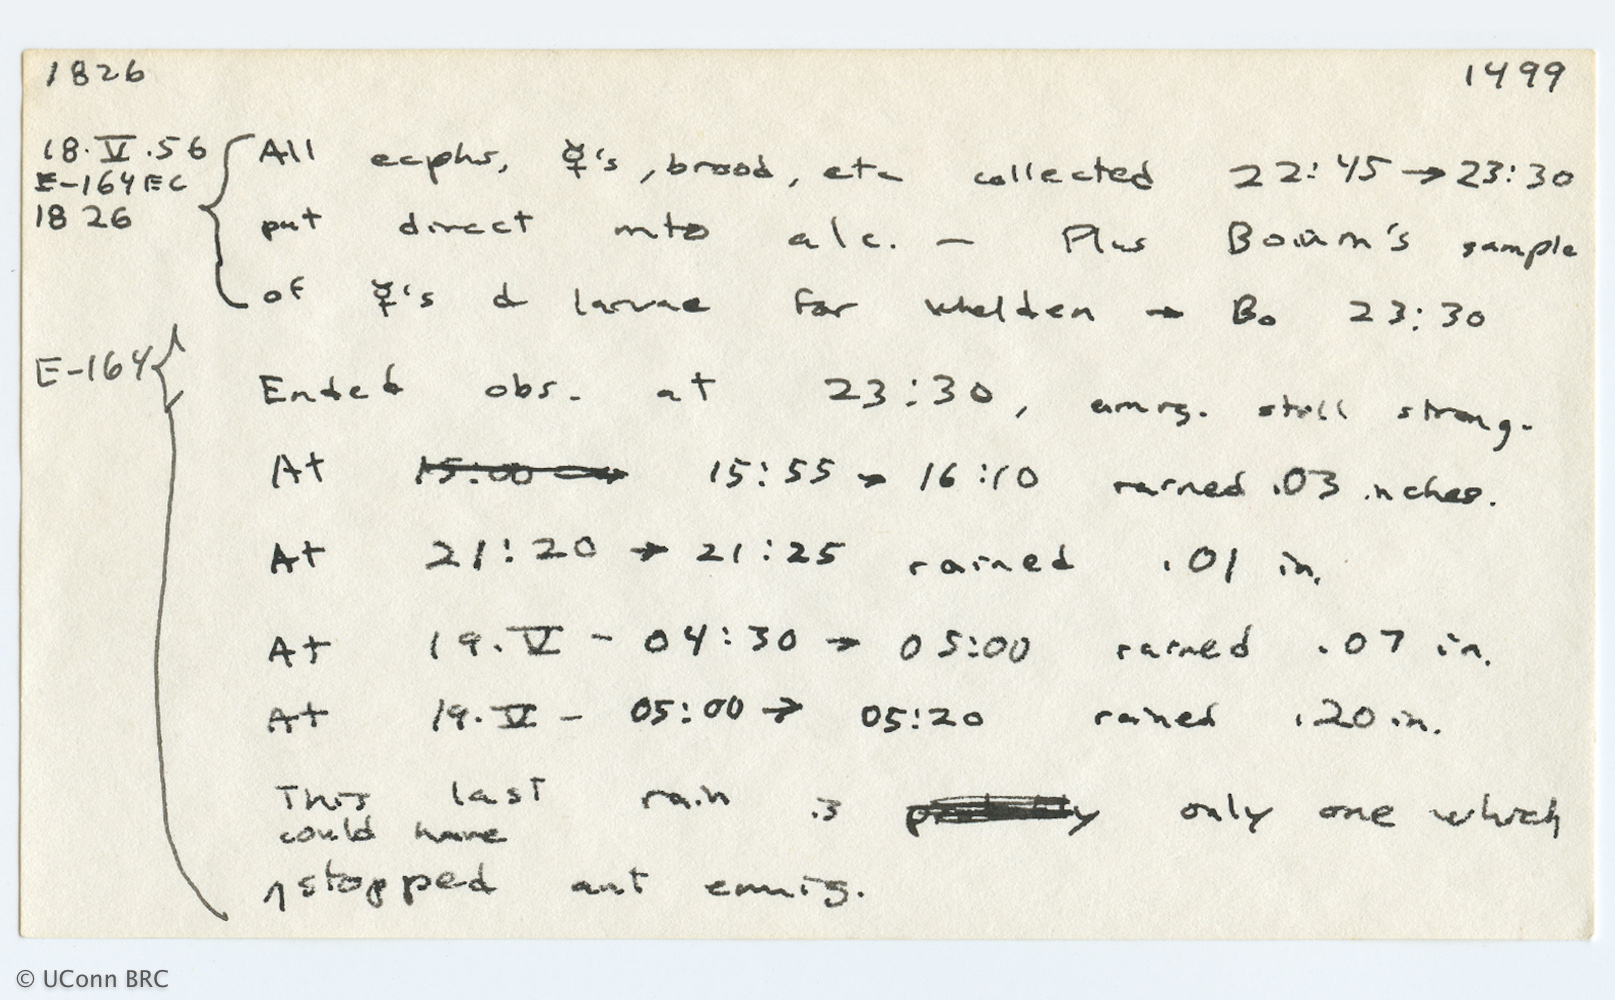 1826 1499
18.V.56 All ecphs, ☿'s, brood, etc collected 22:45 → 23:30
E-164 EC
1826 put direct into alc. — Plus Bouin's sample
of ☿'s & larvae for Whelden → Bo 23:30
E-164 Ended obs. at 23:30, emig. still strong.
At 15:00 → 15:55 → 16:10 rained .03 inches.
At 21:20 → 21:25 rained .01 in.
At 19.V - 04:30 → 05:00 rained .07 in.
At 19.V - 05:00 → 05:20 rained .20 in.
This last rain is only one which
could have
stopped ant emig.
© UConn BRC